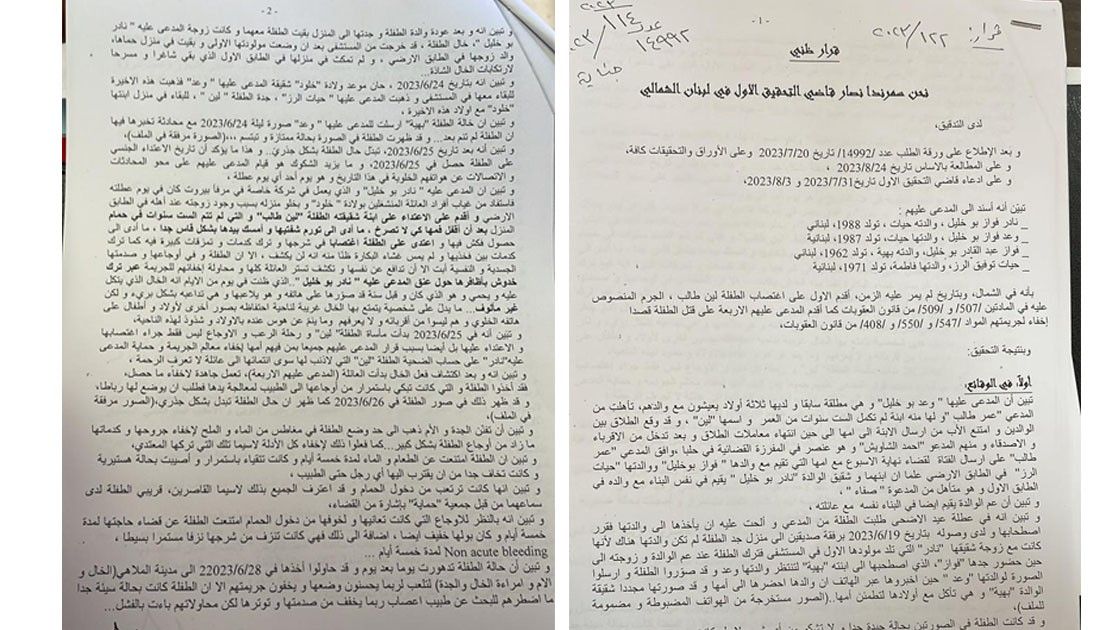 - ١ -
قرار ظني
نحن سمرندا نصار قاضي التحقيق الاول في لبنان الشمالي
لدى التدقيق،
و بعد الإطلاع على ورقة الطلب عدد /14992/ تاريخ 2023/7/20 وعلى الأوراق والتحقيقات كافة،
و على المطالعة بالاساس تاريخ 2023/8/24 ،
و على ادعاء قاضي التحقيق الاول تاريخ 2023/7/31 و 2023/8/3،
تبيّن أنه أسند الى المدعى عليهم :
_ نادر فواز بو خليل ، والدته حيات، تولد 1988، لبناني
_ وعد فواز بو خليل، والدتها حيات، تولد 1987، لبنانية
_ فواز عبد القادر بو خليل، والدته بهية ، تولد 1962، لبناني
_ حيات توفيق الرز، والدتها فاطمة، تولد 1971، لبنانية
بأنه في الشمال، وبتاريخ لم يمر عليه الزمن، أقدم الاول على اغتصاب الطفلة لين طالب ، الجرم المنصوص
عليه في المادتين /507/ و /509/ من قانون العقوبات كما أقدم المدعى عليهم الاربعة على قتل الطفلة قصدا
إخفاء لجريمتهم المواد /547/ و /550/ و /408/ من قانون العقوبات،
وبنتيجة التحقيق:
اولاً، في الوقائع:
تبين أن المدعى عليها " وعد بو خليل" و هي مطلقة سابقا و لديها ثلاثة أولاد يعيشون مع والدهم، تأهلت من
المدعي "عمر طالب "و لها منه ابنة لم تكمل الست سنوات من العمر و اسمها "لين" ، و قد وقع الطلاق بين
الوالدين و امتنع الأب من ارسال الابنة الى امها الى حين انتهاء معاملات الطلاق و بعد تدخل من الاقرباء
و الاصدقاء و منهم المدعو "احمد الشاويش" و هو عنصر في المفرزة القضائية في حلبا ،وافق المدعي "عمر
طالب" على ارسال الفتاة لقضاء نهاية الاسبوع مع امها التي تقيم مع والدها " فواز بوخليل" ووالدتها "حيات
الرز" في الطابق الارضي علما ان ابنهما و شقيق الوالدة "نادر بو خليل " يقيم في نفس البناء مع والده في
الطابق الاول و هو متأهل من المدعوة " صفاء " ،
و تبين أن عم الوالدة يقيم ايضا في البناء نفسه مع عائلته ،
و تبين انه في عطلة عيد الاضحى طلبت الطفلة من المدعي و ألحت عليه ان يأخذها الى والدتها فقرر
اصطحابها و لدى وصوله بتاريخ 2023/6/19 برفقة صديقين الى منزل جد الطفلة لم تكن والدتها هناك لأنها
كانت مع زوجة شقيقها "نادر" التي تلد مولودها الاول في المستشفى فترك الطفلة عند عم الوالدة و زوجته الى
حين حضور جدها "فواز"، الذي اصطحبها الى ابنته "بهية" لتنتظر والدتها وعد و قد صوّروا الطفلة و ارسلوا
الصورة لوالدتها "وعد " حين اخبروها عبر الهاتف ان والدها احضرها الى أمها و قد صورتها مجددا شقيقة
الوالدة "بهية" و هي تأكل مع أولادها لتطمئن أمها..(الصور مستخرجة من الهواتف المضبوطة و مضمومة
للملف)،
- 2 -
و تبين انه و بعد عودة والدة الطفلة و جدتها الى المنزل بقيت الطفلة معهما و كانت زوجة المدعى عليه " نادر
بو خليل " ، خال الطفلة ، قد خرجت من المستشفى بعد ان وضعت مولودتها الاولى و بقيت في منزل حماها،
والد زوجها في الطابق الارضي ، و لم تمكث في منزلها في الطابق الاول الذي بقي شاغرا و مسرحا
لارتكابات الخال الشاذة...
و تبين انه بتاريخ 2023/6/24 ، حان موعد ولادة "خلود" شقيقة المدعى عليها " وعد" فذهبت هذه الاخيرة
للبقاء معها في المستشفى و ذهبت المدعى عليها " حيات الرز" ، جدة الطفلة " لين" ، للبقاء في منزل ابنتها
"خلود" مع اولاد هذه الاخيرة ،
و تبين ان خالة الطفلة "بهية" ارسلت للمدعى عليها " وعد" صورة ليلة 2023/6/24 مع محادثة تخبرها فيها
ان الطفلة لم تنم بعد... و قد ظهرت الطفلة في الصورة بحالة ممتازة و تبتسم ،،،(الصورة مرفقة في الملف)،
و تبين أنه بتاريخ 2023/6/25، تبدل حال الطفلة بشكل جذري.. و هذا ما يؤكد أن تاريخ الاعتداء الجنسي
على الطفلة حصل في 2023/6/25، و ما يزيد الشكوك هو قيام المدعى عليهم على محو المحادثات
و الاتصالات عن هواتفهم الخلوية في هذا التاريخ و هو يوم أحد أي يوم عطلة ،
و تبين ان المدعى عليه " نادر بو خليل" و الذي يعمل في شركة خاصة في مرفأ بيروت كان في يوم عطلته
فاستفاد من غياب أفراد العائلة المنشغلين بولادة " خلود" و بخلو منزله بسبب وجود زوجته عند أهله في الطابق
الارضي و أقدم على الاعتداء على ابنة شقيقته الطفلة "لين طالب" و التي لم تتم الست سنوات في حمام
المنزل بعد أن أقفل فمها كي لا تصرخ ، ما أدى الى تورم شفتيها و أمسك بيدها بشكل قاس جدا ، ما ادى الى
حصول فكش فيها و اعتدى على الطفلة اغتصابا في شرجها و ترك كدمات و تمزقات كبيرة فيه كما ترك
كدمات بين فخذيها و لم يمس غشاء البكارة ظنا منه انه لن يكشف ، الا ان الطفلة و في أوجاعها و صدمتها
الجسدية و النفسية أبت الا أن تدافع عن نفسها و تكشف تستر العائلة كلها و محاولة إخفائهم للجريمة عبر ترك
خدوش بأظافرها حول عنق المدعى عليه " نادر بو خليل "..الذي ظنت في يوم من الايام انه الخال الذي يتكل
عليه و يحمي و هو الذي كان و قبل سنة قد صوّرها على هاتفه و هو يلاعبها و هي تداعبه بشكل بريء و لكن
غير مألوف... ما يدل على شخصية يتمتع بها الخال غريبة لناحية احتفاظه بصور أخرى لاولاد و أطفال على
هاتفه الخلوي و هم ليسوا من أقربائه و لا يعرفهم وما ينم عن هوس عنده بالاولاد و شذوذ لهذه الناحية،
و تبين أنه في 2023/6/25 بدأت مأساة الطفلة" لين " و رحلة الرعب و الاوجاع ليس فقط جراء اغتصابها
و الاعتداء عليها بل ايضا بسبب قرار المدعى عليهم جميعا بمن فيهم أمها إخفاء معالم الجريمة و حماية المدعى
عليه"نادر" على حساب الضحية الطفلة "لين" التي لاذنب لها سوى انتمائها الى عائلة لا تعرف الرحمة ،
و تبين انه و بعد اكتشاف فعل الخال بدأت العائلة (المدعى عليهم الاربعة)، تعمل جاهدة لاخفاء ما حصل،
فقد أخذوا الطفلة و التي كانت تبكي باستمرار من أوجاعها الى الطبيب لمعالجة يدها فطلب ان يوضع لها رباطا،
و قد ظهر ذلك في صور الطفلة في 2023/6/26 كما ظهر ان حال الطفلة تبدل بشكل جذري،(الصور مرفقة
في الملف)،
و تبين أن تفنن الجدة و الأم ذهب الى حد وضع الطفلة في مغاطس من الماء و الملح لإخفاء جروحها و كدماتها
ما زاد من أوجاع الطفلة بشكل كبير...كما فعلوا ذلك لإخفاء كل الأدلة لاسيما تلك التي تركها المعتدي،
و تبين ان الطفلة امتنعت عن الطعام و الماء لمدة خمسة أيام و كانت تتقياء باستمرار و أصيبت بحالة هستيرية
و كانت تخاف جدا من ان يقترب اليها أي رجل حتى الطبيب ،
و تبين انها كانت ترتعب من دخول الحمام و قد اعترف الجميع بذلك لاسيما القاصرين، قريبي الطفلة لدى
سماعهما من قبل جمعية "حماية" بإشارة من القضاء،
و تبين انه بالنظر للاوجاع التي كانت تعانيها و لخوفها من دخول الحمام امتنعت الطفلة عن قضاء حاجتها لمدة
خمسة أيام و كان بولها خفيف أيضا ، اضافة الى ذلك فهي كانت تنزف من شرجها نزفا مستمرا بسيطا ،
Non acute bleeding لمدة خمسة أيام ...
و تبين أن حالة الطفلة تدهورت يوما بعد يوم و قد حاولوا أخذها في 22023/6/28 الى مدينة الملاهي(الخال و
الام و امراءة الخال و الجدة) لتلعب لربما يحسنون وضعها و يخفون جريمتهم الا ان الطفلة كانت بحالة سيئة جدا
ما اضطرهم للبحث عن طبيب اعصاب ربما يخفف من صدمتها و توترها لكن محاولاتهم باءت بالفشل...